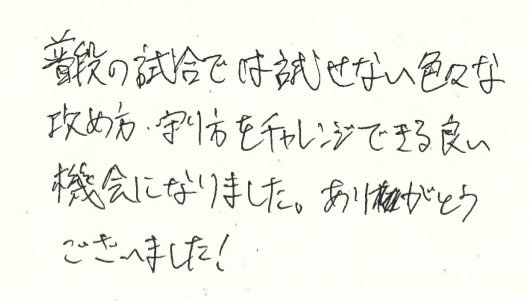 普段の試合では試せない色々な
攻め方・守り方をチャレンジできる良い
機会になりました。ありがとう
ございました!